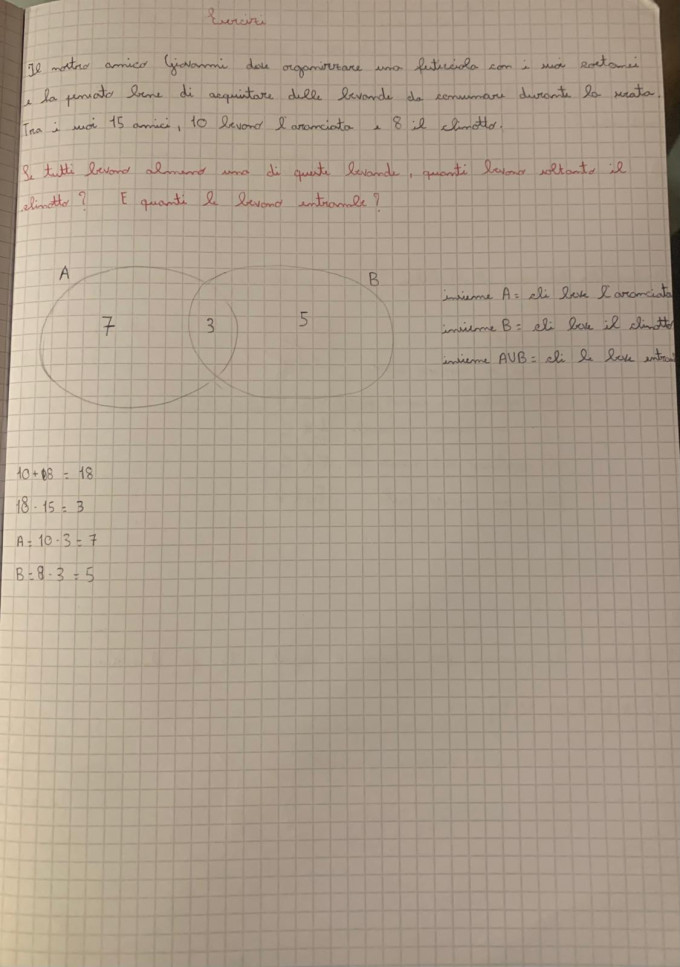 Esercizi
Il nostro amico Giovanni deve organizzare una festicciola con i suoi coetanei
e ha pensato bene di acquistare delle bevande da consumare durante la serata.
Tra i suoi 15 amici, 10 bevono l'aranciata e 8 il chinotto.
Se tutti bevono almeno una di queste bevande, quanti bevono soltanto il
chinotto? E quanti le bevono entrambe?
A
B
7 3 5
insieme A = chi beve l'aranciata
insieme B = chi beve il chinotto
insieme A∪B = chi le beve
10+8 = 18
18-15 = 3
A = 10-3 = 7
B = 8-3 = 5